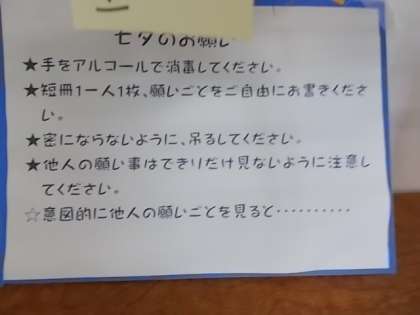 七夕のお願い
★手をアルコールで消毒してください。
★短冊1一人1枚、願いごとをご自由にお書きくださ
い。
★密にならないように、吊るしてください。
★他人の願い事はできりだけ見ないように注意し
てください。
☆意図的に他人の願いごとを見ると‥‥‥‥‥